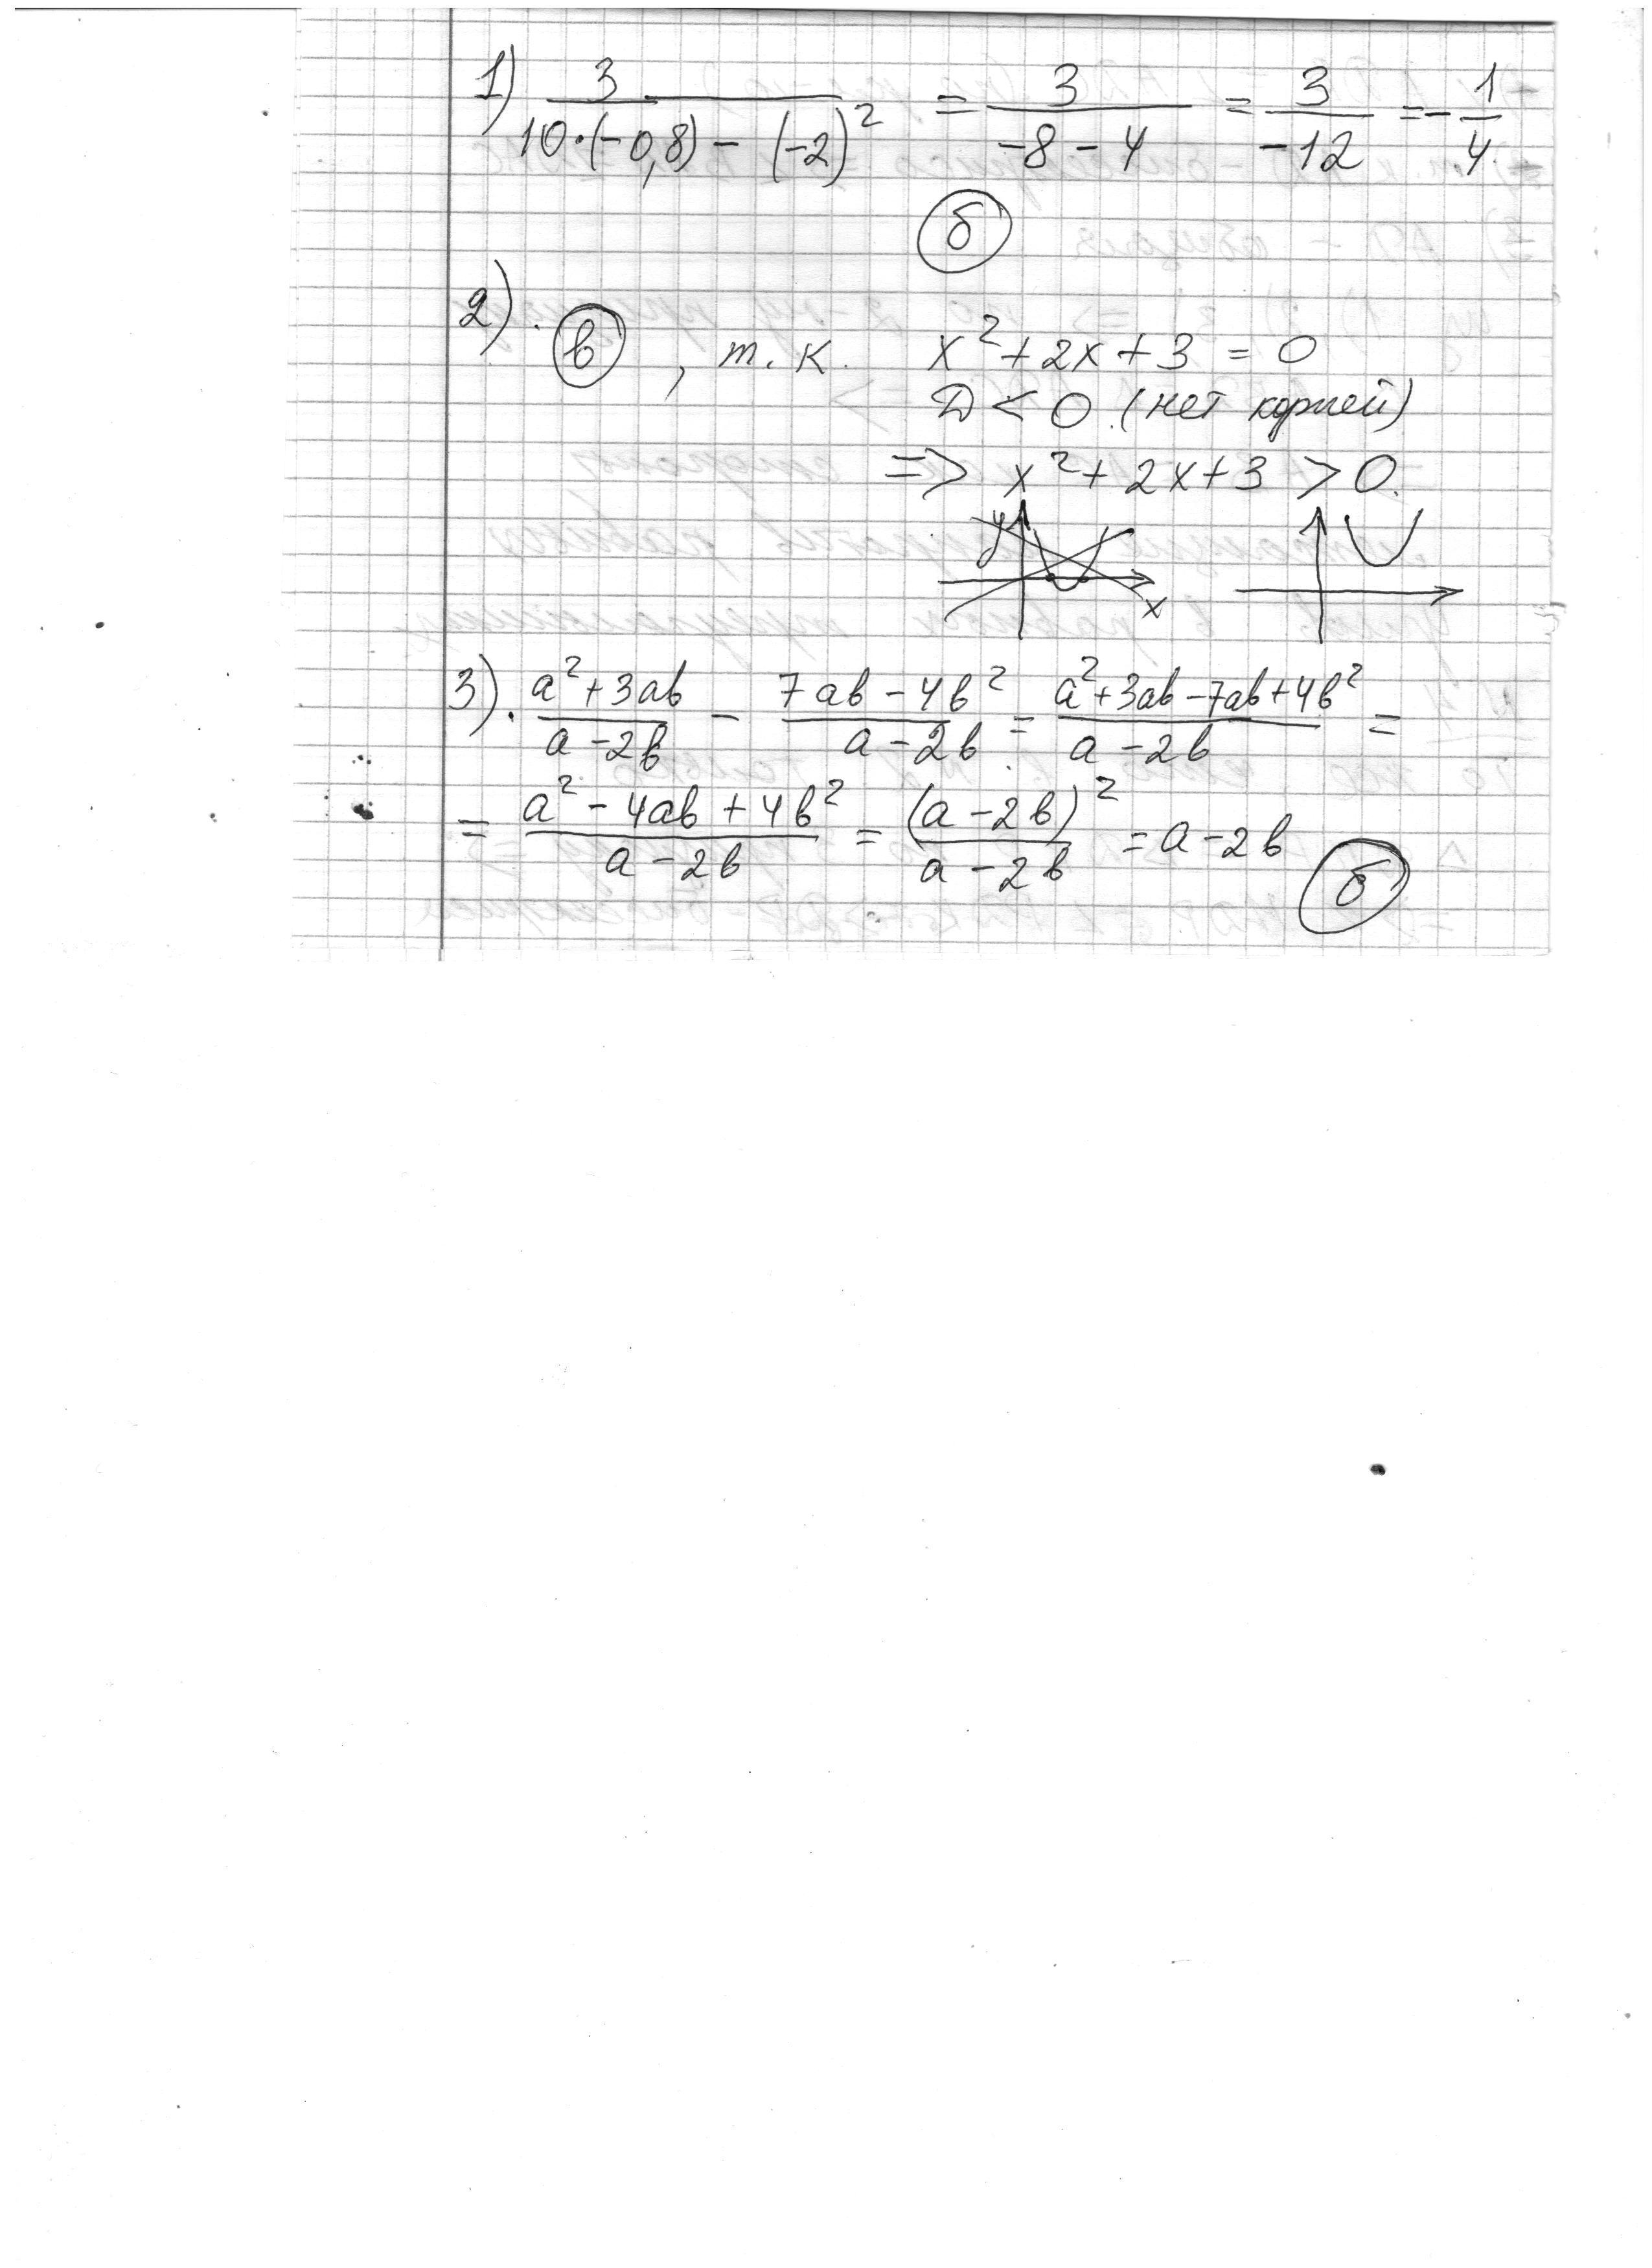 1) 3/(10·(-0,8) - (-2)²) = 3/(-8 - 4) = 3/(-12) = -1/4
б
2). в, т.к. x² + 2x + 3 = 0
D < 0. (нет корней)
=> x² + 2x + 3 > 0.
y x
3). (a² + 3ab)/(a - 2b) - (7ab - 4b²)/(a - 2b) = (a² + 3ab - 7ab + 4b²)/(a - 2b) =
= (a² - 4ab + 4b²)/(a - 2b) = (a - 2b)²/(a - 2b) = a - 2b
б